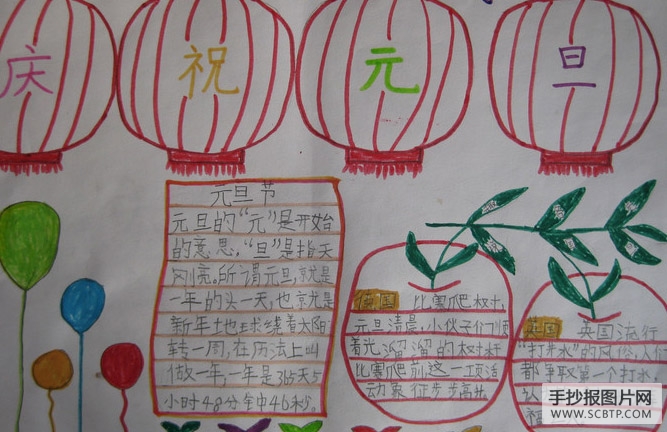 庆 祝 元 旦
元旦节
元旦的“元”是开始
的意思,“旦”是指天
刚亮。所谓元旦,就是
一年的头一天,也就是
新年地球绕着太阳
转一周,在历法上叫
做一年,一年是365天5
小时48分钟46秒。
德国 比赛爬树。
元旦清晨,小伙子们顺
着光溜溜的树干
比赛爬高,这一项活
动象征步步高升。
英国 英国流行
“打井水”的风俗,人们
都争取第一个打水,
手抄报图片网
WWW.SCBTP.COM